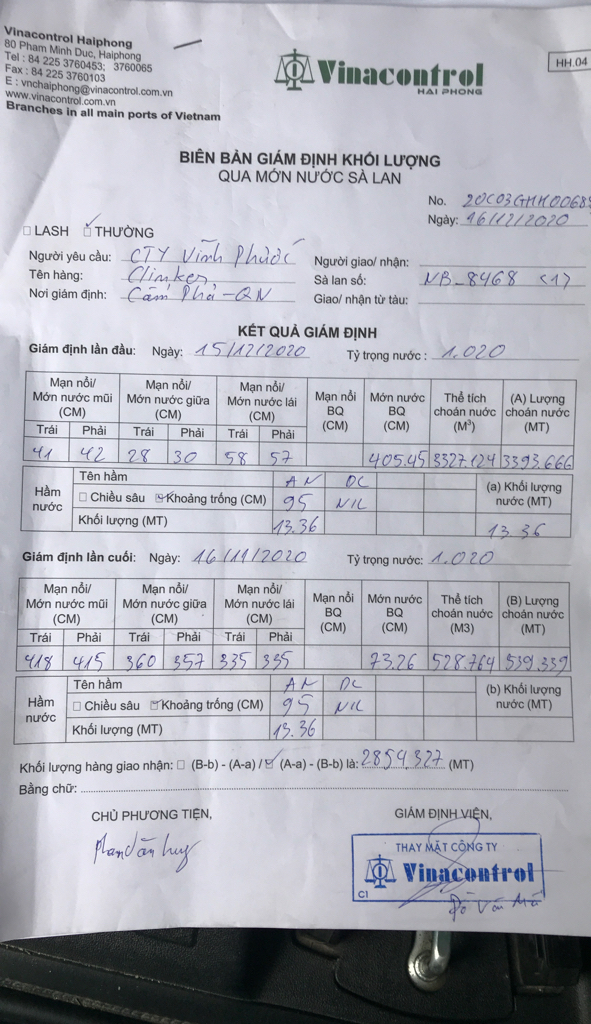 Vinacontrol Haiphong
80 Pham Minh Duc, Haiphong
Tel : 84 225 3760453; 3760065
Fax : 84 225 3760103
E : vnchaiphong@vinacontrol.com.vn
www.vinacontrol.com.vn
Branches in all main ports of Vietnam
Vinacontrol
HAI PHONG
HH.04
BIÊN BẢN GIÁM ĐỊNH KHỐI LƯỢNG
QUA MỚN NƯỚC SÀ LAN
No. 20C03GHH0068
Ngày: 16/12/2020
LASH THƯỜNG
Người yêu cầu: CTY Vĩnh Phước Người giao/ nhận:
Tên hàng: Clinker Sà lan số: NB_8468 <1>
Nơi giám định: Cẩm Phả-QN Giao/ nhận từ tàu:
KẾT QUẢ GIÁM ĐỊNH
Giám định lần đầu: Ngày: 15/12/2020 Tỷ trọng nước : 1.020
Mạn nổi/ Mớn nước mũi (CM) Mạn nổi/ Mớn nước giữa (CM) Mạn nổi/ Mớn nước lái (CM) Mạn nổi BQ (CM) Mớn nước BQ (CM) Thể tích choán nước (M³) (A) Lượng choán nước (MT)
Trái Phải Trái Phải Trái Phải
41 42 28 30 58 57 405.45 3327.124 3393.666
Hầm nước Tên hầm AN DC (a) Khối lượng nước (MT)
Chiều sâu Khoảng trống (CM) 95 NIL
Khối lượng (MT) 13.36 13.36
Giám định lần cuối: Ngày: 16/11/2020 Tỷ trọng nước: 1.020
Mạn nổi/ Mớn nước mũi (CM) Mạn nổi/ Mớn nước giữa (CM) Mạn nổi/ Mớn nước lái (CM) Mạn nổi BQ (CM) Mớn nước BQ (CM) Thể tích choán nước (M3) (B) Lượng choán nước (MT)
Trái Phải Trái Phải Trái Phải
418 415 360 357 335 335 73.26 528.764 539.339
Hầm nước Tên hầm AN DC (b) Khối lượng nước (MT)
Chiều sâu Khoảng trống (CM) 95 NIL
Khối lượng (MT) 13.36
Khối lượng hàng giao nhận: (B-b) - (A-a) / (A-a) - (B-b) là: 2854,327 (MT)
Bằng chữ:
CHỦ PHƯƠNG TIỆN, GIÁM ĐỊNH VIÊN,
THAY MẶT CÔNG TY
Vinacontrol
C1